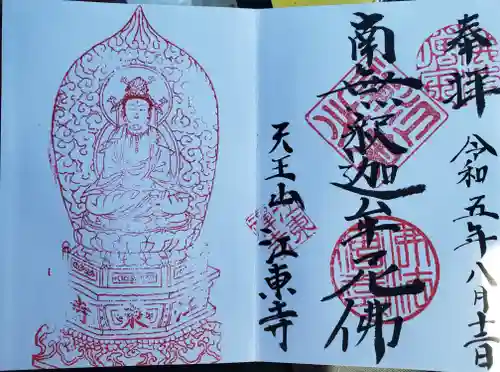 奉拝
令和五年八月十三日
南無釈迦牟尼佛
天王山 江東寺
江東寺